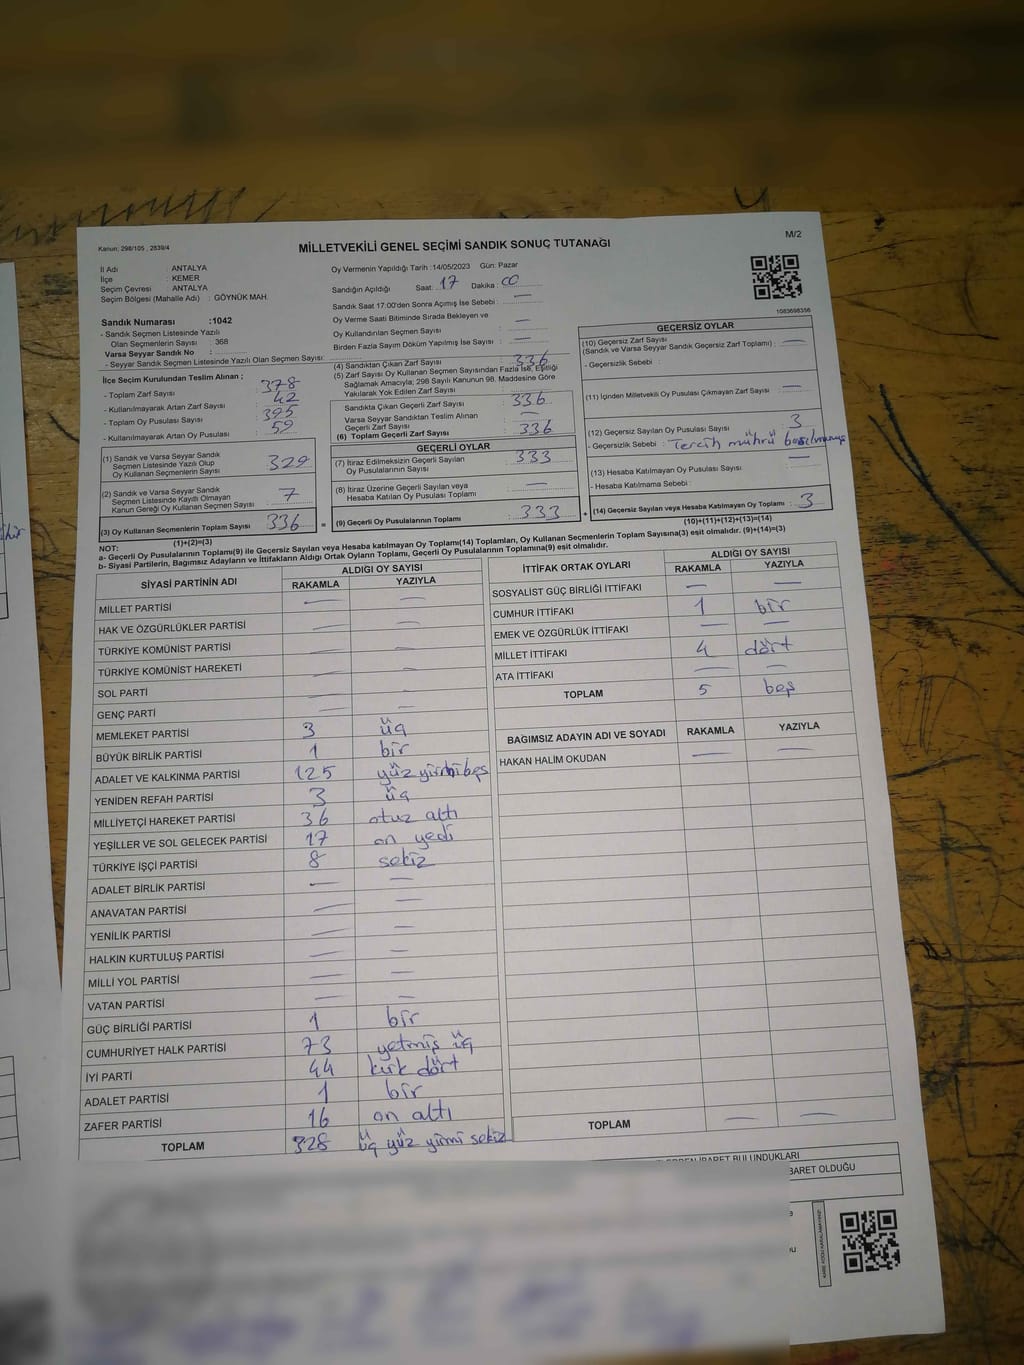 Kanun; 298/105 , 2839/4
MİLLETVEKİLİ GENEL SEÇİMİ SANDIK SONUÇ TUTANAĞI
M/2
İl Adı : ANTALYA
İlçe : KEMER
Seçim Çevresi : ANTALYA
Seçim Bölgesi (Mahalle Adı) : GÖYNÜK MAH.
Oy Vermenin Yapıldığı Tarih :14/05/2023 Gün: Pazar
Sandığın Açıldığı Saat: 17 Dakika: 00
Sandık Saat 17:00'den Sonra Açılmış İse Sebebi : —
Oy Verme Saati Bitiminde Sırada Bekleyen ve
Oy Kullandırılan Seçmen Sayısı : —
Birden Fazla Sayım Döküm Yapılmış İse Sayısı : —
1083698356
Sandık Numarası :1042
- Sandık Seçmen Listesinde Yazılı
Olan Seçmenlerin Sayısı : 368
Varsa Seyyar Sandık No :
- Seyyar Sandık Seçmen Listesinde Yazılı Olan Seçmen Sayısı:
İlçe Seçim Kurulundan Teslim Alınan ;
- Toplam Zarf Sayısı : 378
- Kullanılmayarak Artan Zarf Sayısı : 42
- Toplam Oy Pusulası Sayısı : 395
- Kullanılmayarak Artan Oy Pusulası : 59
(1) Sandık ve Varsa Seyyar Sandık
Seçmen Listesinde Yazılı Olup
Oy Kullanan Seçmenlerin Sayısı : 329
(2) Sandık ve Varsa Seyyar Sandık
Seçmen Listesinde Kayıtlı Olmayan
Kanun Gereği Oy Kullanan Seçmen Sayısı : 7
(3) Oy Kullanan Seçmenlerin Toplam Sayısı : 336 =
(1)+(2)=(3)
(4) Sandıktan Çıkan Zarf Sayısı : 336
(5) Zarf Sayısı Oy Kullanan Seçmen Sayısından Fazla İse, Eşitliği
Sağlamak Amacıyla; 298 Sayılı Kanunun 98. Maddesine Göre
Yakılarak Yok Edilen Zarf Sayısı :
Sandıkta Çıkan Geçerli Zarf Sayısı : 336
Varsa Seyyar Sandıktan Teslim Alınan
Geçerli Zarf Sayısı : —
(6) Toplam Geçerli Zarf Sayısı : 336
GEÇERLİ OYLAR
(7) İtiraz Edilmeksizin Geçerli Sayılan
Oy Pusulalarının Sayısı : 333
(8) İtiraz Üzerine Geçerli Sayılan veya
Hesaba Katılan Oy Pusulası Toplamı : —
(9) Geçerli Oy Pusulalarının Toplamı : 333 +
GEÇERSİZ OYLAR
(10) Geçersiz Zarf Sayısı
(Sandık ve Varsa Seyyar Sandık Geçersiz Zarf Toplamı) : —
- Geçersizlik Sebebi :
(11) İçinden Milletvekili Oy Pusulası Çıkmayan Zarf Sayısı : —
(12) Geçersiz Sayılan Oy Pusulası Sayısı : 3
- Geçersizlik Sebebi : Tercih mührü basılmamış
(13) Hesaba Katılmayan Oy Pusulası Sayısı : —
- Hesaba Katılmama Sebebi :
(14) Geçersiz Sayılan veya Hesaba Katılmayan Oy Toplamı : 3
(10)+(11)+(12)+(13)=(14)
NOT:
a- Geçerli Oy Pusulalarının Toplamı(9) ile Geçersiz Sayılan veya Hesaba katılmayan Oy Toplamı(14) Toplamları, Oy Kullanan Seçmenlerin Toplam Sayısına(3) eşit olmalıdır. (9)+(14)=(3)
b- Siyasi Partilerin, Bağımsız Adayların ve İttifakların Aldığı Ortak Oyların Toplamı, Geçerli Oy Pusulalarının Toplamına(9) eşit olmalıdır.
SİYASİ PARTİNİN ADI ALDIĞI OY SAYISI
RAKAMLA YAZIYLA
MİLLET PARTİSİ — —
HAK VE ÖZGÜRLÜKLER PARTİSİ — —
TÜRKİYE KOMÜNİST PARTİSİ — —
TÜRKİYE KOMÜNİST HAREKETİ — —
SOL PARTİ — —
GENÇ PARTİ — —
MEMLEKET PARTİSİ 3 üç
BÜYÜK BİRLİK PARTİSİ 1 bir
ADALET VE KALKINMA PARTİSİ 125 yüz yirmi beş
YENİDEN REFAH PARTİSİ 3 üç
MİLLİYETÇİ HAREKET PARTİSİ 36 otuz altı
YEŞİLLER VE SOL GELECEK PARTİSİ 17 on yedi
TÜRKİYE İŞÇİ PARTİSİ 8 sekiz
ADALET BİRLİK PARTİSİ — —
ANAVATAN PARTİSİ — —
YENİLİK PARTİSİ — —
HALKIN KURTULUŞ PARTİSİ — —
MİLLİ YOL PARTİSİ — —
VATAN PARTİSİ — —
GÜÇ BİRLİĞİ PARTİSİ 1 bir
CUMHURİYET HALK PARTİSİ 73 yetmiş üç
İYİ PARTİ 44 kırk dört
ADALET PARTİSİ 1 bir
ZAFER PARTİSİ 16 on altı
TOPLAM 328 üç yüz yirmi sekiz
İTTİFAK ORTAK OYLARI ALDIĞI OY SAYISI
RAKAMLA YAZIYLA
SOSYALİST GÜÇ BİRLİĞİ İTTİFAKI — —
CUMHUR İTTİFAKI 1 bir
EMEK VE ÖZGÜRLÜK İTTİFAKI — —
MİLLET İTTİFAKI 4 dört
ATA İTTİFAKI — —
TOPLAM 5 beş
BAĞIMSIZ ADAYIN ADI VE SOYADI RAKAMLA YAZIYLA
HAKAN HALİM OKUDAN — —
TOPLAM — —
İBARET BULUNDUKLARI
BARET OLDUĞU